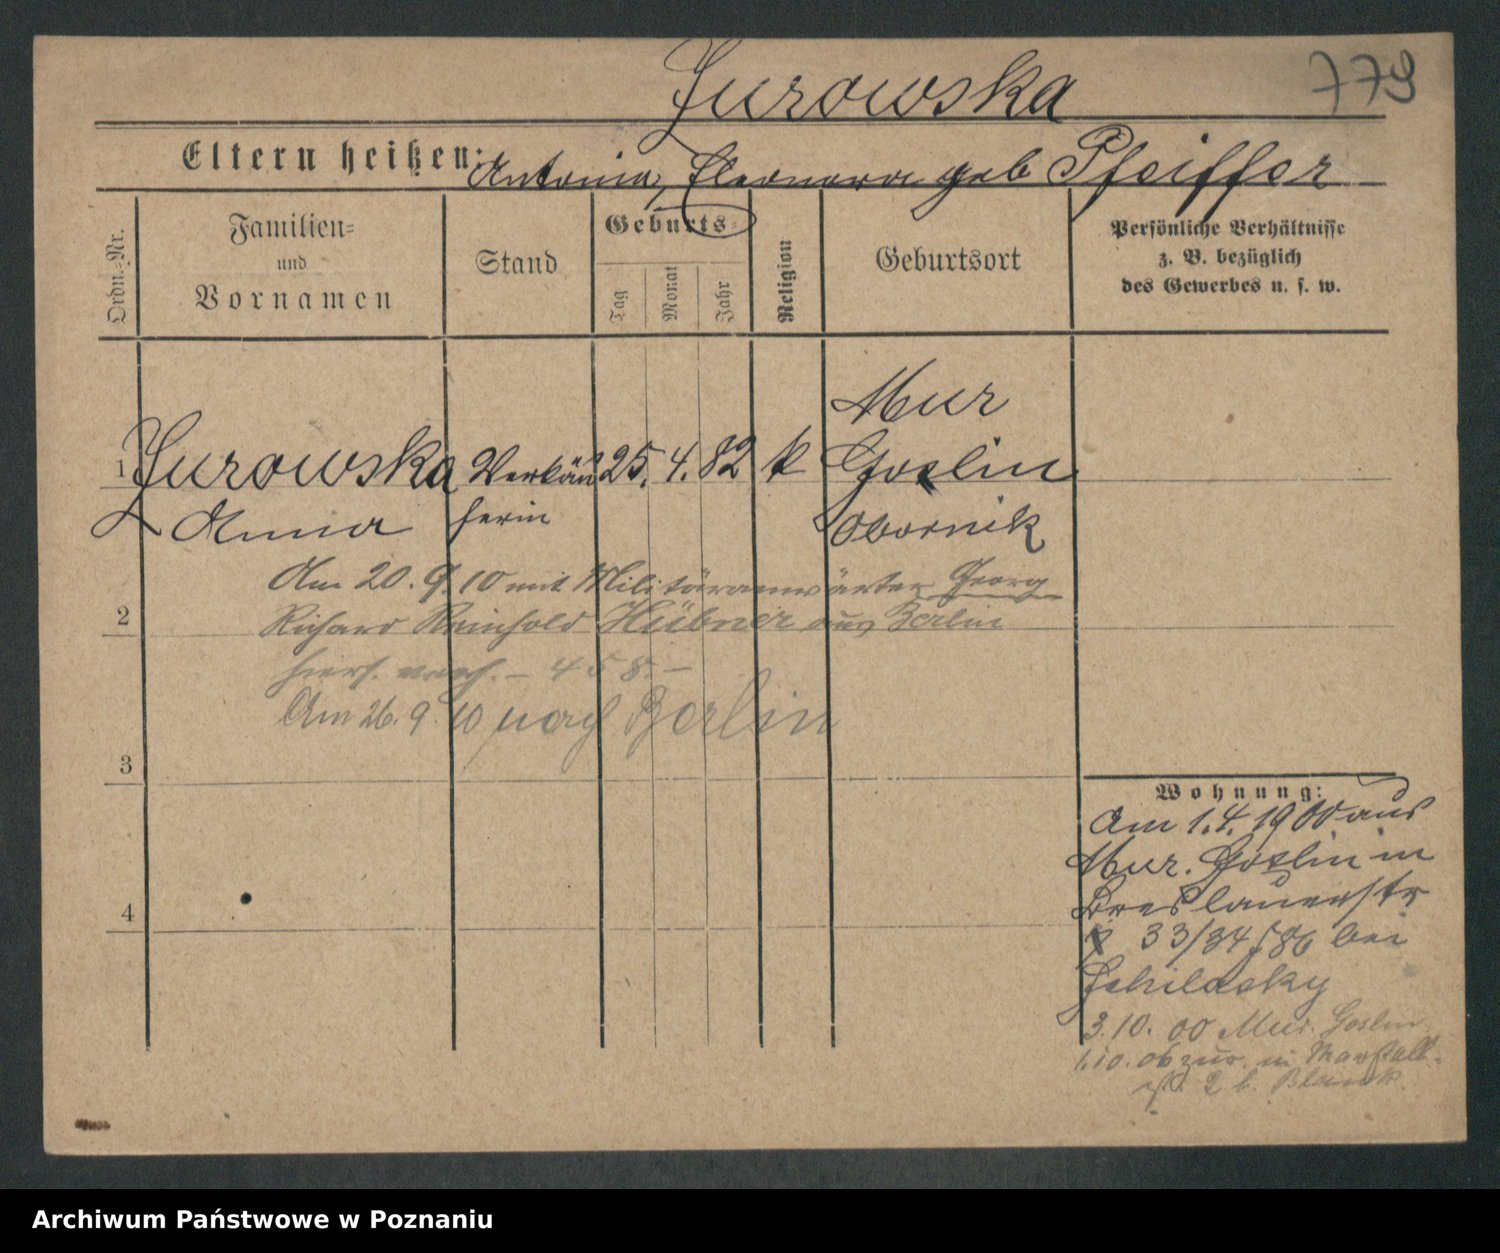 Zurowska
779
Eltern heißen:
Antonia, Eleonora geb Pfeiffer
Ordn.-Nr.
Familien-
und
Vornamen
Stand
Geburts-
Tag
Monat
Jahr
Religion
Geburtsort
Persönliche Verhältnisse
z. B. bezüglich
des Gewerbes u. s. w.
Mur
1 Zurowska Verkäu 25. 4. 82 k Goslin
Anna ferin Obornik
Am 20. 9. 10 mit Militäranwärter Georg
2 Richard Reinhold Hübner aus Berlin
hiers. – 458. –
Am 26. 9. 10 nach Berlin
3
Wohnung:
Am 1. 4. 1900 aus
Mur. Goslin in
Breslauerstr
4
33/34 bei
Schilasky
3. 10. 00 Mur. Goslin
1. 10. 06 zur. in Marstall-
str. 2 b. Blank
Archiwum Państwowe w Poznaniu